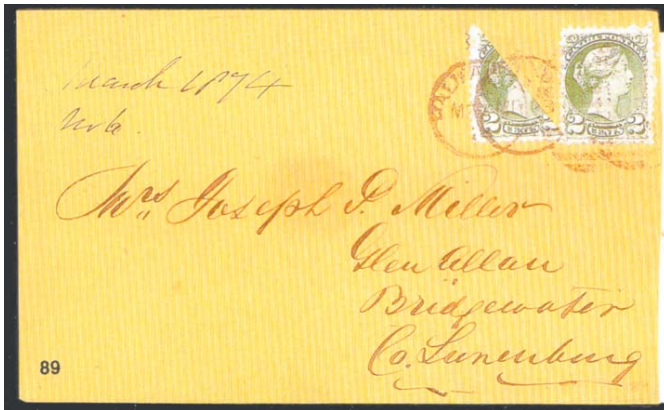 March 1874
No 6.
2 2 2
CENTS
Mrs Joseph P. Miller
Glen Allan
Bridgewater
Co. Lunenburg
89